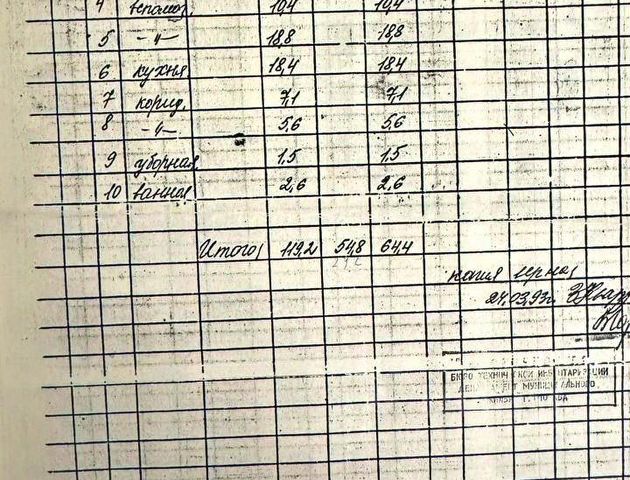 4 вспомог. 10,4 10,4
5 –"– 18,8 18,8
6 кухня 18,4 18,4
7 корид. 7,1 7,1
8 –"– 5,6 5,6
9 уборная 1,5 1,5
10 ванная 2,6 2,6
Итого 119,2 54,8 64,4
копия верна
24.03.93г.
БЮРО ТЕХНИЧЕСКОЙ ИНВЕНТАРИЗАЦИИ
МУНИЦИПАЛЬНОГО